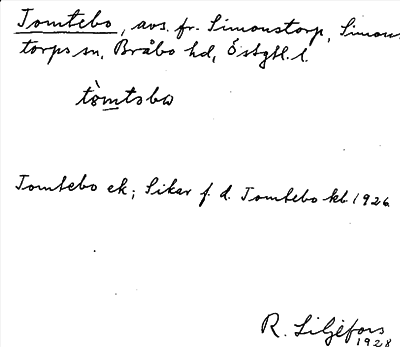 Tomtebo, avs. fr. Simonstorp, Simons
torps sn, Bråbo hd, Östgtl. l.
tòmtəbω
Tomtebo ek; Likar f. d. Tomtebo kb 1926
R. Liljefors
1928